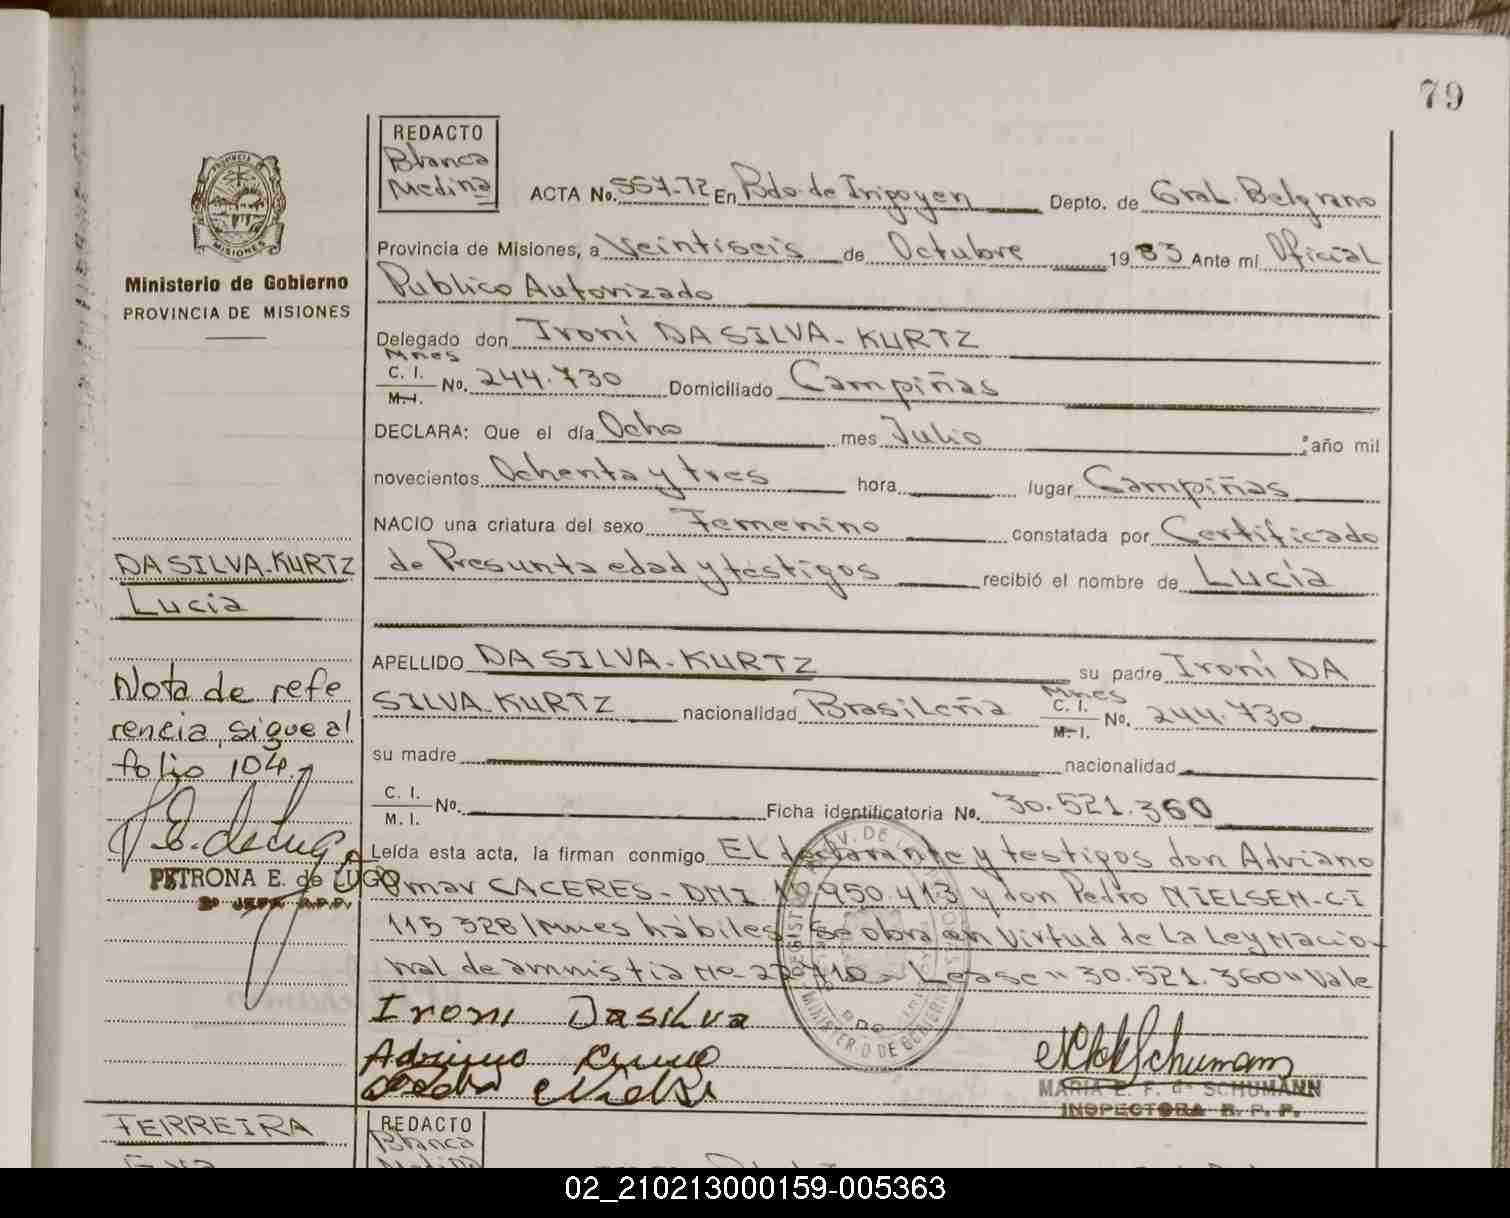 79
REDACTO
Blanca
Medina
ACTA No. 557-T2 En Bdo. de Irigoyen Depto. de Gral. Belgrano
Provincia de Misiones, a Veintiseis de Octubre 1983 Ante mí Oficial
Público Autorizado
Delegado don Ironi DA SILVA-KURTZ
Mnes
C. I.
M. I.
No. 244.730 Domiciliado Campiñas
DECLARA: Que el día Ocho mes Julio ; año mil
novecientos Ochenta y tres hora lugar Campiñas
NACIO una criatura del sexo Femenino constatada por Certificado
de Presunta edad y testigos recibió el nombre de Lucía
APELLIDO DA SILVA-KURTZ su padre Ironi DA
SILVA-KURTZ nacionalidad Brasileña Mnes C. I. M. I. No. 244.730
su madre nacionalidad
C. I.
M. I.
No. Ficha identificatoria No. 30.521.360
Leída esta acta, la firman conmigo El declarante y testigos don Adriano
Omar CACERES- DNI 10 950.413 y don Pedro NIELSEN-C-I
115 328/Mnes hábiles- Se obra en Virtud de La Ley Nacio-
nal de amnistia Nº 22.710- Lease "30.521.360" Vale
Ironi Dasilva
MARIA E. F. de SCHUMANN
INSPECTORA R. P. P.
Ministerio de Gobierno
PROVINCIA DE MISIONES
DA SILVA-KURTZ
Lucia
Nota de refe
rencia, sigue al
folio 104.
PETRONA E. de LUGO
2º JEFE R.P.P.
FERREIRA
REDACTO
Blanca
02_210213000159-005363